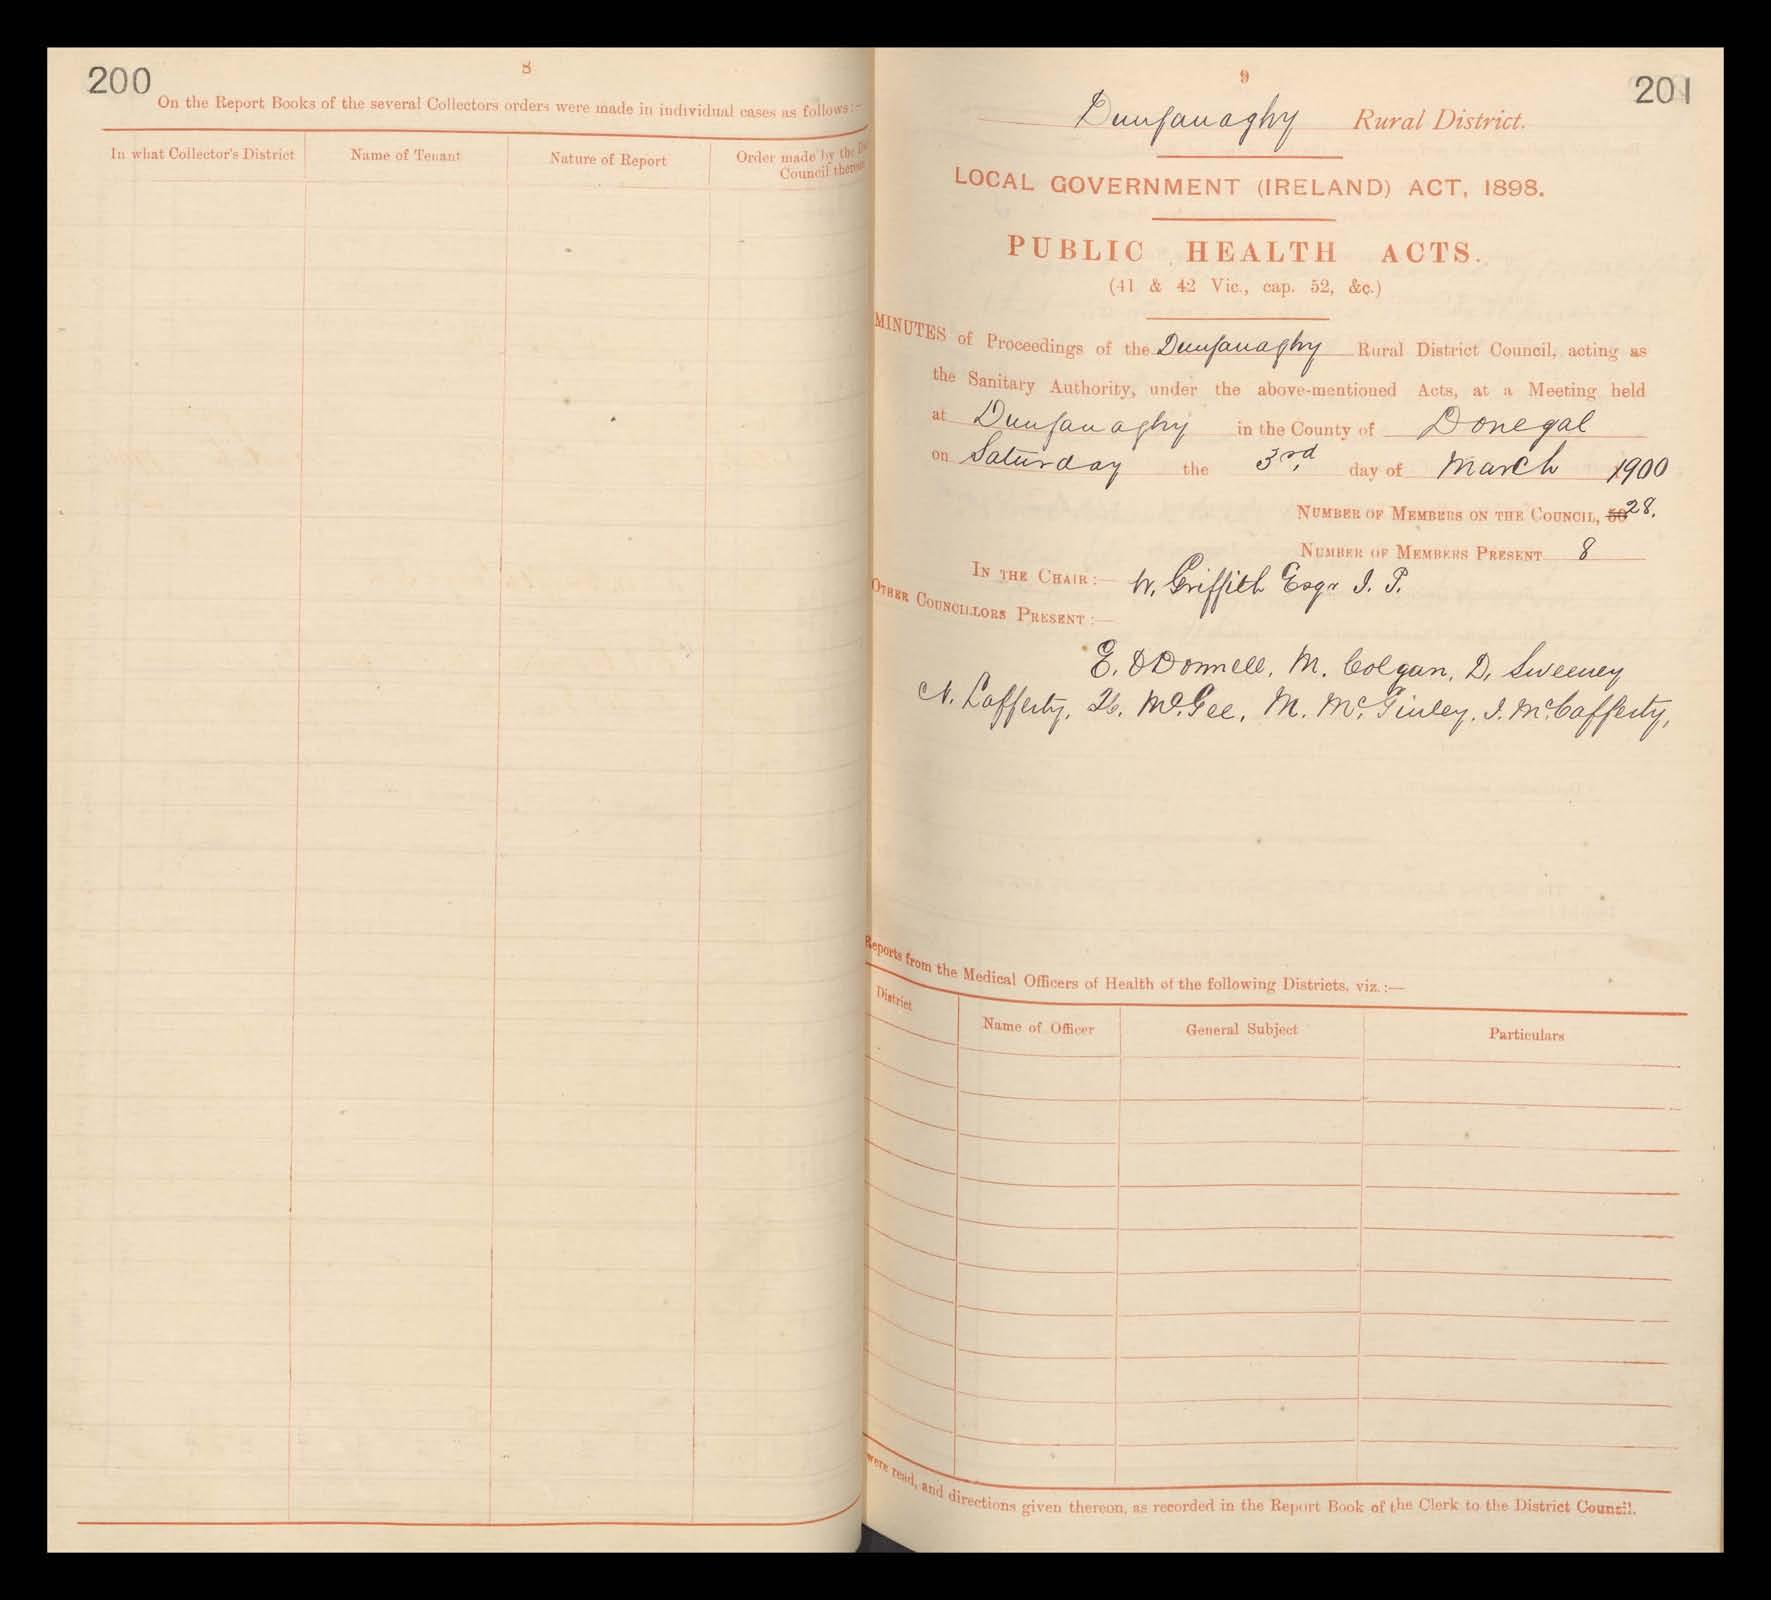 200
8
On the Report Books of the several Collectors orders were made in individual cases as follows:—
In what Collector's District
Name of Tenant
Nature of Report
Order made by the
Council
201
9
Dunfanaghy Rural District.
LOCAL GOVERNMENT (IRELAND) ACT, 1898.
PUBLIC HEALTH ACTS.
(41 & 42 Vic., cap. 52, &c.)
MINUTES of Proceedings of the Dunfanaghy Rural District Council, acting as
the Sanitary Authority, under the above-mentioned Acts, at a Meeting held
at Dunfanaghy in the County of Donegal
on Saturday the 3rd day of March 1900
NUMBER OF MEMBERS ON THE COUNCIL, 50 28.
NUMBER OF MEMBERS PRESENT 8
IN THE CHAIR:— W. Griffith Esqr J. P.
OTHER COUNCILLORS PRESENT:—
E. O'Donnell, M. Colgan, D. Sweeney
N. Lafferty, H. McGee, M. McGinley, J. McCafferty,
Reports from the Medical Officers of Health of the following Districts, viz.:—
District
Name of Officer
General Subject
Particulars
were read, and directions given thereon, as recorded in the Report Book of the Clerk to the District Council.